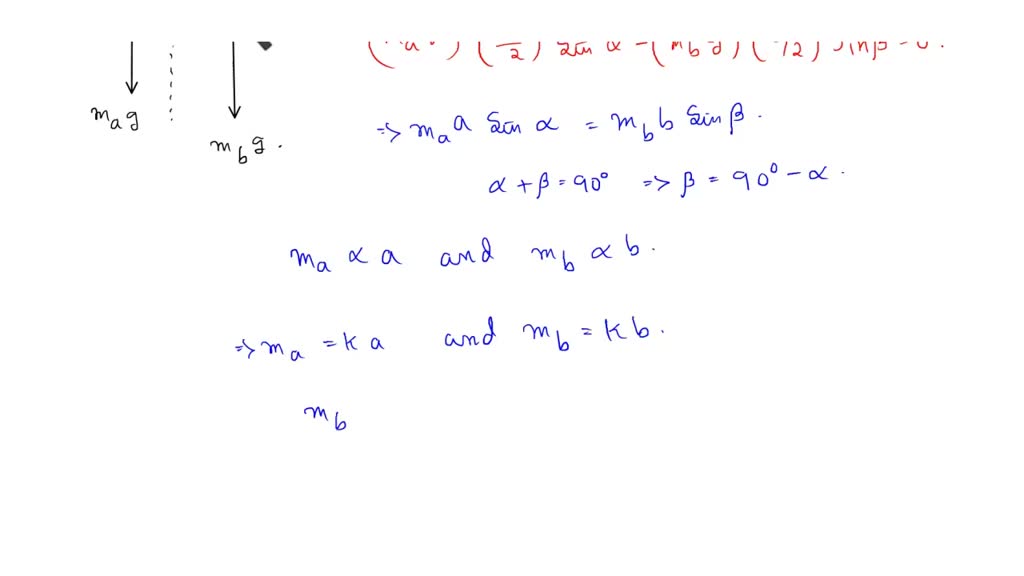 2) sin α - (m_b g) ( /2) sin β = 0.
m_a g
m_b g.
=> m_a a sin α = m_b b sin β.
α + β = 90° => β = 90° - α.
m_a ∝ a and m_b ∝ b.
=> m_a = k a and m_b = k b.
m_b